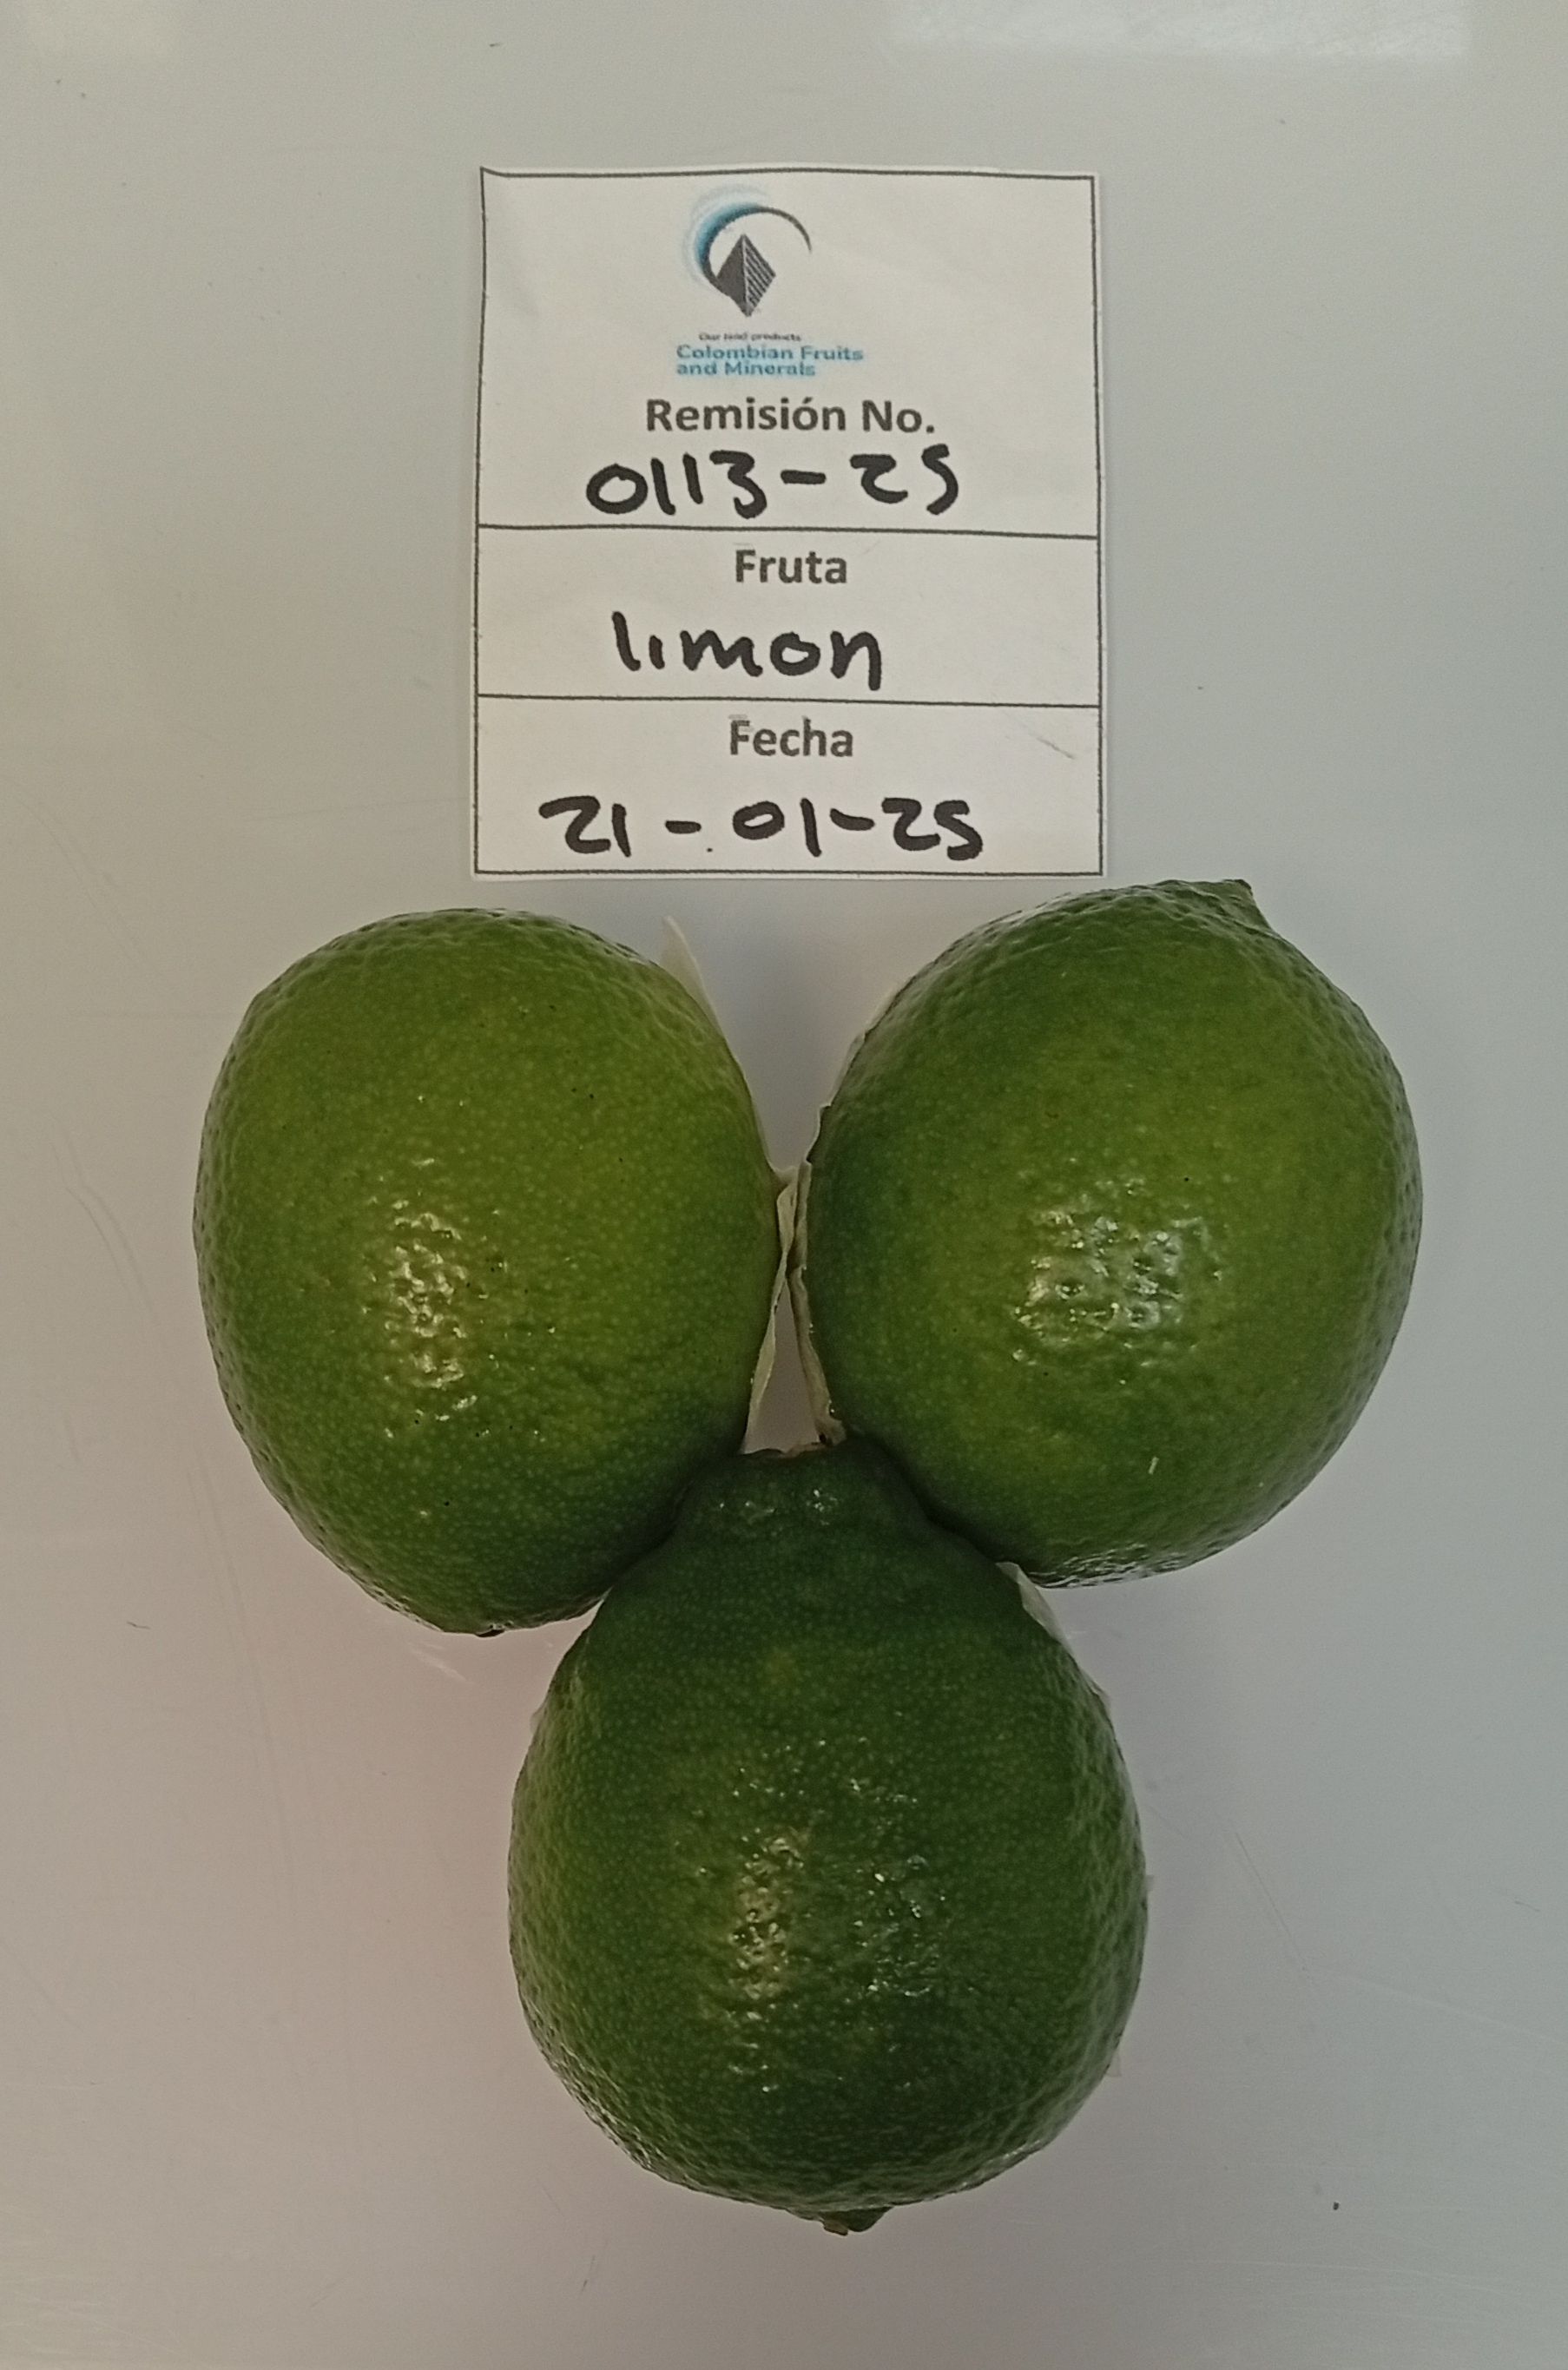 Our field products
Colombian Fruits
and Minerals
Remisión No.
0113-25
Fruta
limon
Fecha
21-01-25